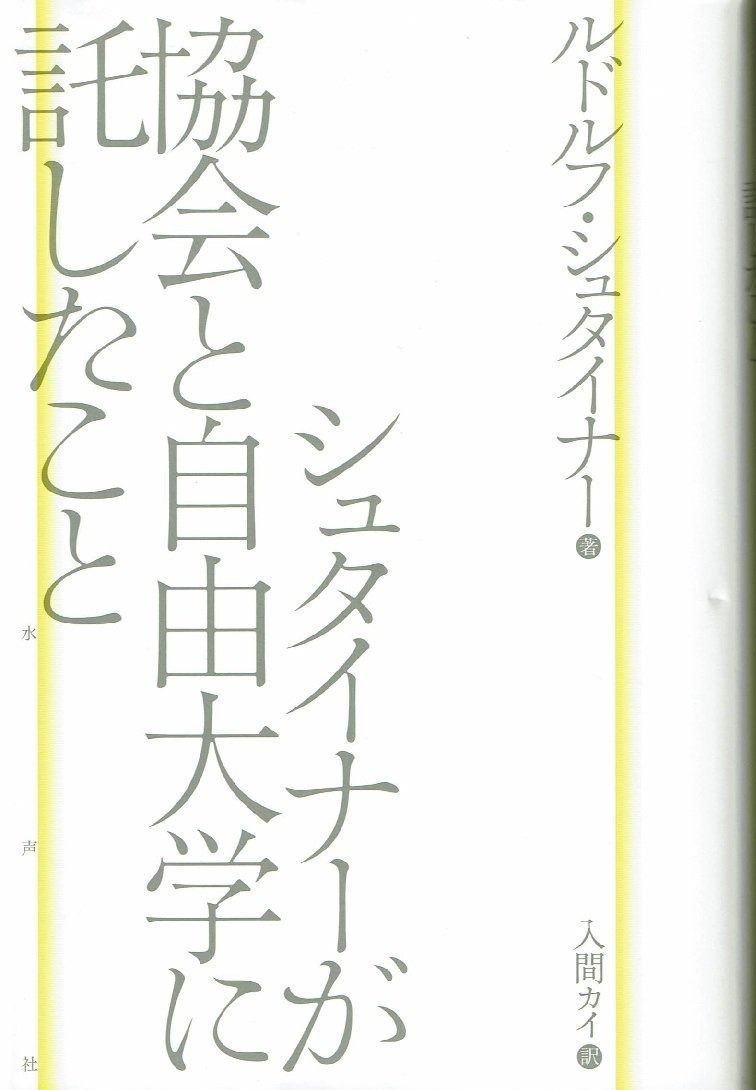 ルドルフ・シュタイナー 著
入間カイ 訳
シュタイナーが
協会と自由大学に
託したこと
水声社